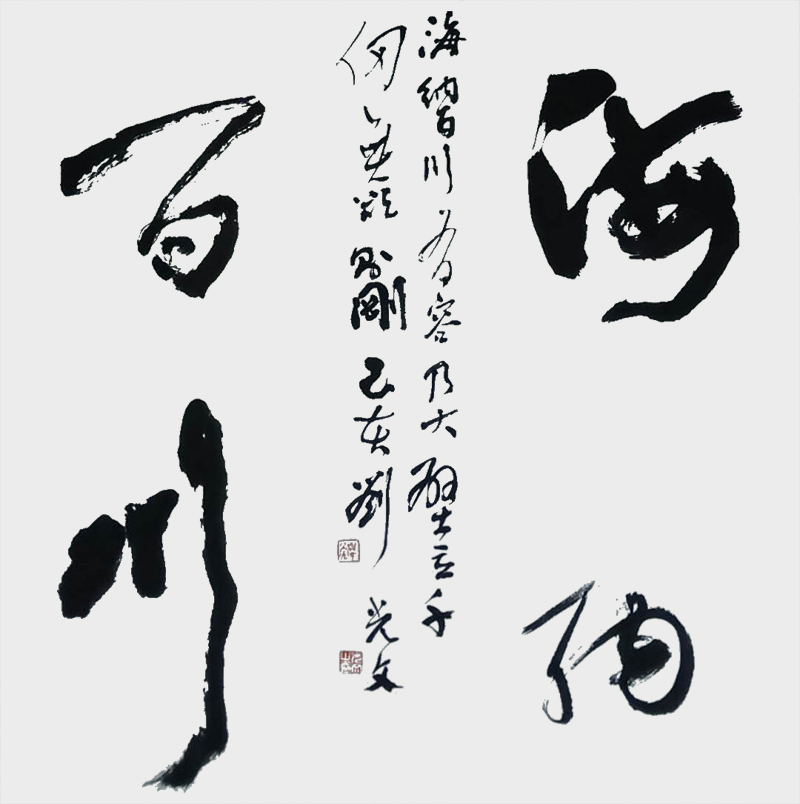 海納
百川
海納百川有容乃大壁立千
仞無欲則剛己亥劉光文